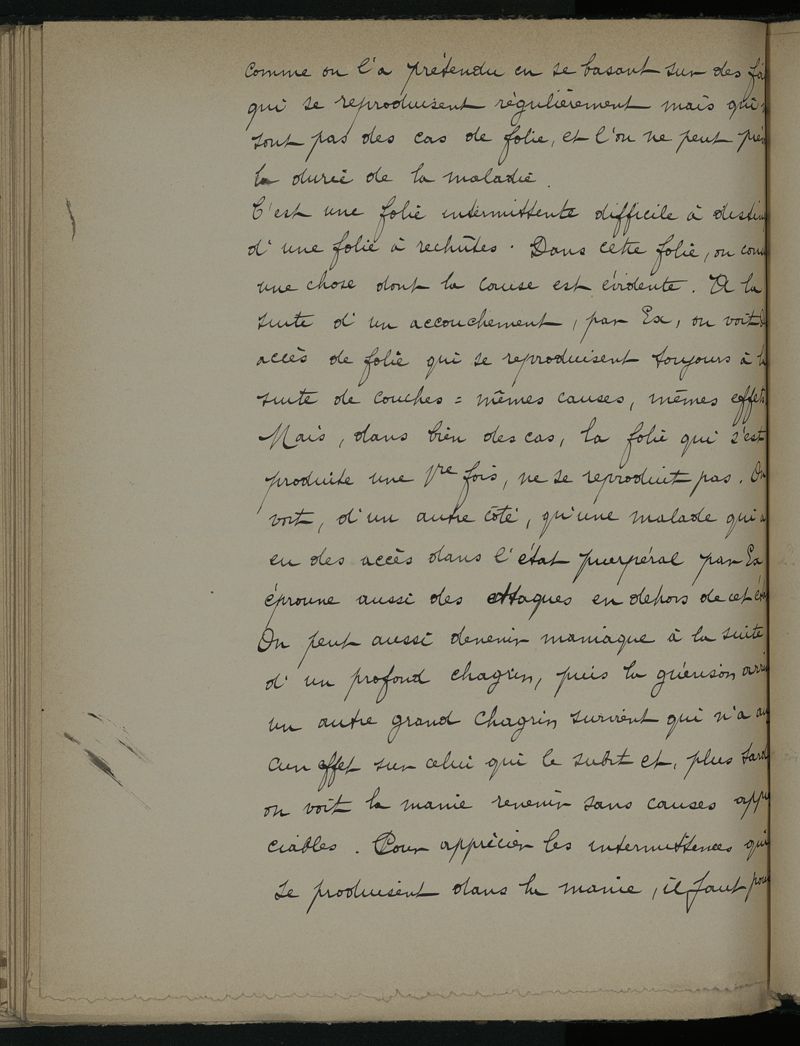 comme on l'a prétendu en se basant sur des fai
qui se reproduisent régulièrement mais qui n
sont pas des cas de folie, et l'on ne peut prév
la durée de la maladie.
C'est une folie intermittente difficile à distin
d'une folie à rechûtes. Dans cette folie, on
une chose dont la cause est évidente. A la
suite d'un accouchement, par Ex, on voit
accès de folie qui se reproduisent toujours à la
suite de couches = mêmes causes, mêmes effets.
Mais, dans bien des cas, la folie qui s'est
produite une 1re fois, ne se reproduit pas. On
voit, d'un autre côté, qu'une malade qui a
eu des accès dans l'état puerpéral par Ex
éprouve aussi des attaques en dehors de cet ét
On peut aussi devenir maniaque à la suite
d'un profond chagrin, puis la guérison arri
un autre grand chagrin survient qui n'a au
cun effet sur celui qui le subit et, plus tard
on voit la manie revenir sans causes appr
ciables. Pour apprécier les intermittences qui
se produisent dans la manie, il faut pou